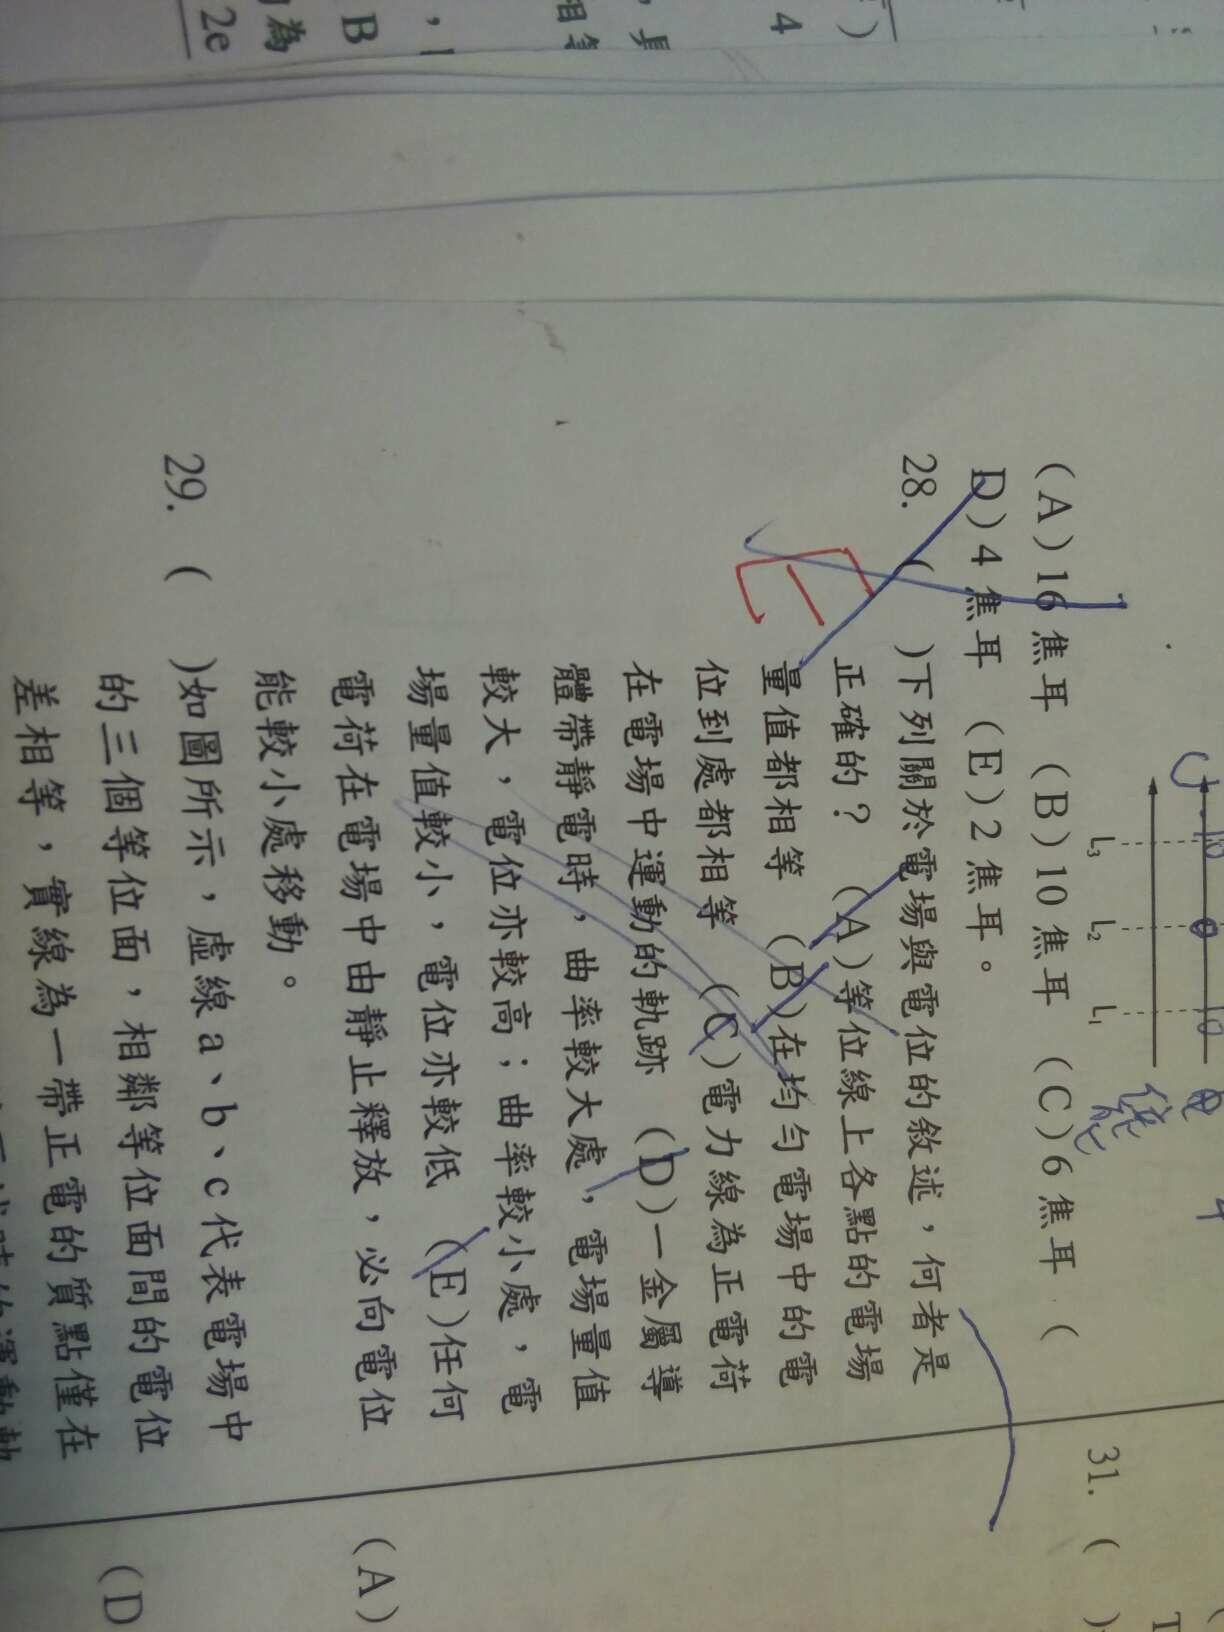 4
)
相
B
為
2e
L₃
L₂
L₁
能
(A)16焦耳 (B)10焦耳 (C)6焦耳 (
D)4焦耳 (E)2焦耳。
28. ( )下列關於電場與電位的敘述，何者是
正確的？ (A)等位線上各點的電場
量值都相等 (B)在均勻電場中的電
位到處都相等 (C)電力線為正電荷
在電場中運動的軌跡 (D)一金屬導
體帶靜電時，曲率較大處，電場量值
較大，電位亦較高；曲率較小處，電
場量值較小，電位亦較低 (E)任何
電荷在電場中由靜止釋放，必向電位
能較小處移動。
E
29. ( )如圖所示，虛線a、b、c代表電場中
的三個等位面，相鄰等位面間的電位
差相等，實線為一帶正電的質點僅在
31. ( )
(A)
(D